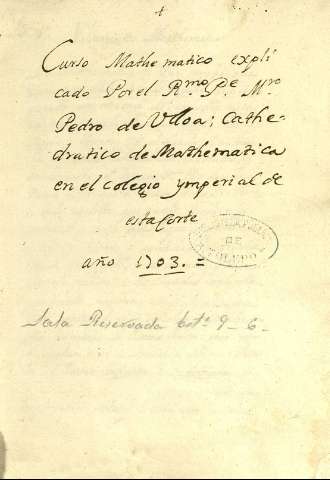 Curso Mathematico expli
cado Por el R.mo P.e M.ro
Pedro de Ulloa; Cathe-
dratico de Mathematica
en el colegio ymperial de
esta Corte
año 1703. =
DE
TOLEDO
Sala Reservada Est.e 9 - 6 -